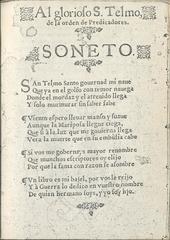 Al glorioso S. Telmo,
de la orden de Predicadores.
SONETO.
SAn Telmo Santo gouernad mi naue
Que ya en el golfo con temor nauega
Donde el mordaz y el atreuido llega
Y solo murmurar sin saber sabe
Viento espero lleuar manso y suaue
Aunque la Mariposa llegue ciega,
Que si a la luz que me gouierna llega
Vera la muerte que en su
Si vos me gobernays mayor renombre
Que munchos escriptores
Por que la fama con razon se assombre
Un libro es mi baxel, por vos le rrijo
Y à Guerra lo dedico en vuestro nombre
De quien hermano soys, y yo soy hijo.